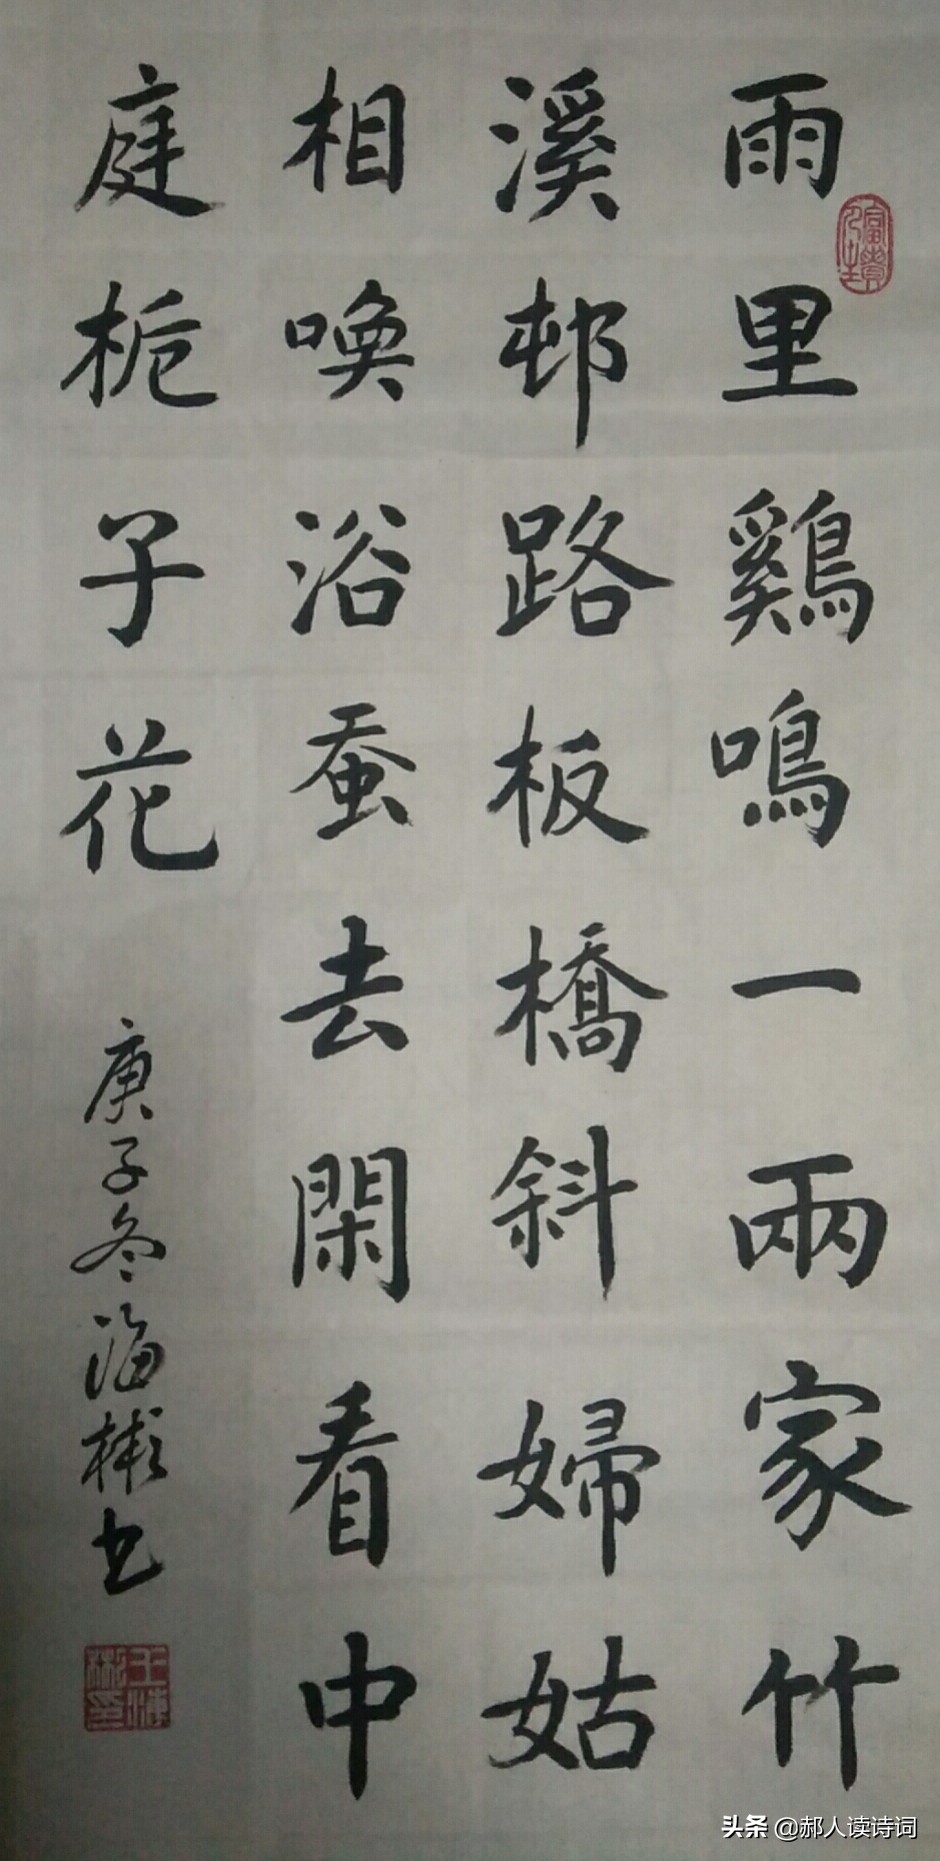 雨里鷄鳴一兩家竹
溪邨路板橋斜婦姑
相喚浴蚕去閑看中
庭栀子花
庚子冬海彬书
富貴
王海彬印
头条 @郝人读诗词